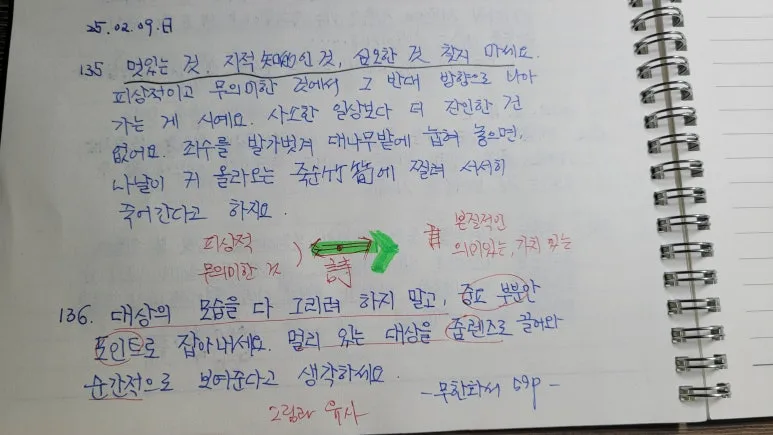 25.02.09.日
135 멋있는 것, 지적知的인 것, 심오한 것 찾지 마세요.
피상적이고 무의미한 것에서 그 반대 방향으로 나아
가는 게 시예요. 사소한 일상보다 더 잔인한 건
없어요. 죄수를 발가벗겨 대나무밭에 눕혀 놓으면,
나날이 커 올라오는 죽순竹筍에 찔려 서서히
죽어간다고 하지요.
피상적
무의미한 것
詩
본질적인
의미있는, 가치 있는
136. 대상의 모습을 다 그리려 하지 말고, 중요 부분만
포인트로 잡아내세요. 멀리 있는 대상을 줌렌즈로 끌어와
순간적으로 보여준다고 생각하세요.
-무한화서 59p-
그림과 유사